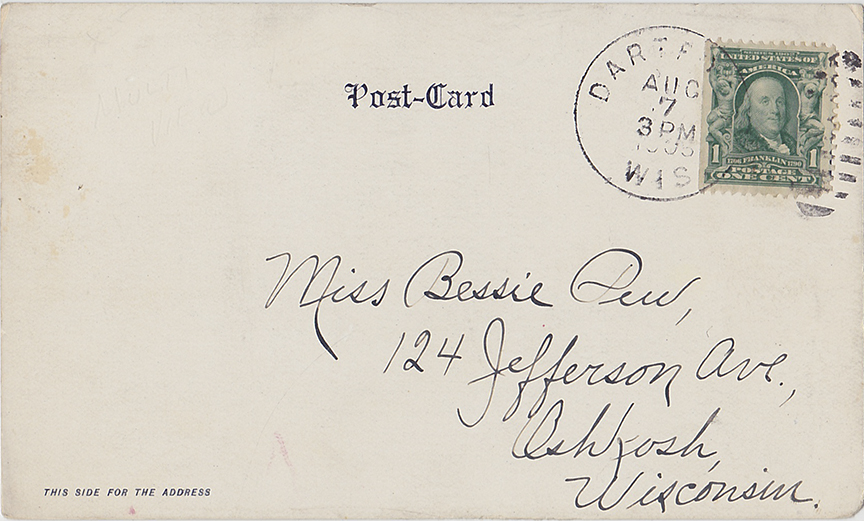 Post-Card
DARTF
AUG
7
3 PM
WIS
UNITED STATES OF
AMERICA
1 FRANKLIN 1
POSTAGE
ONE CENT
Miss Bessie Pew,
124 Jefferson Ave.,
Oshkosh,
Wisconsin.
THIS SIDE FOR THE ADDRESS